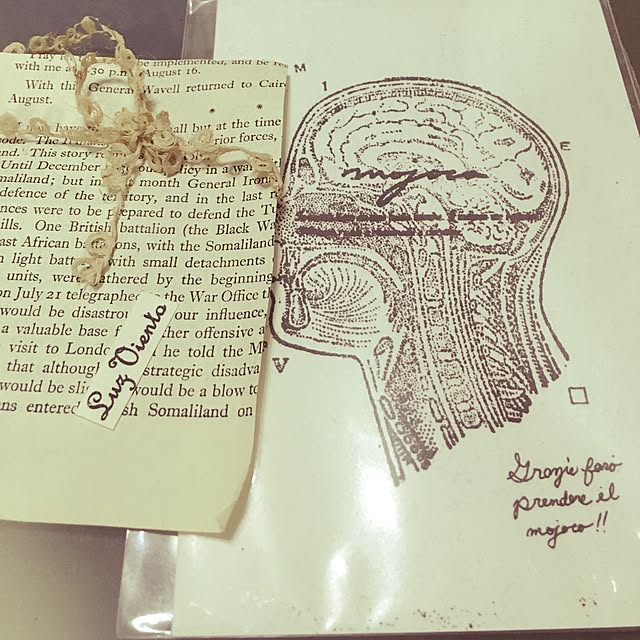 Pray
be implemented, and be re
with me at
-30 p.m. August 16.
With this General Wavell returned to Cair
August.
* *
all but at the time
rior forces,
and. This story
Until December
policy in a war
maliland; but in
month General Iron
defence of the territory, and in the last
nces were to be prepared to defend the Tu
ills. One British battalion (the Black Wa
ast African
ons, with the Somaliland
light
with small detachments
units, were gathered by the beginning
on July 21 telegraphed the War Office th
would be disastrou
our influence,
a valuable base f
her offensive a
visit to Londo
he told the M
that althoug
strategic disadva
would be sli
would be a blow to
ans entered
sh Somaliland on
Luz Viento
M
I
E
mojoco
V
Grazie farò
prendere il
mojoco!!